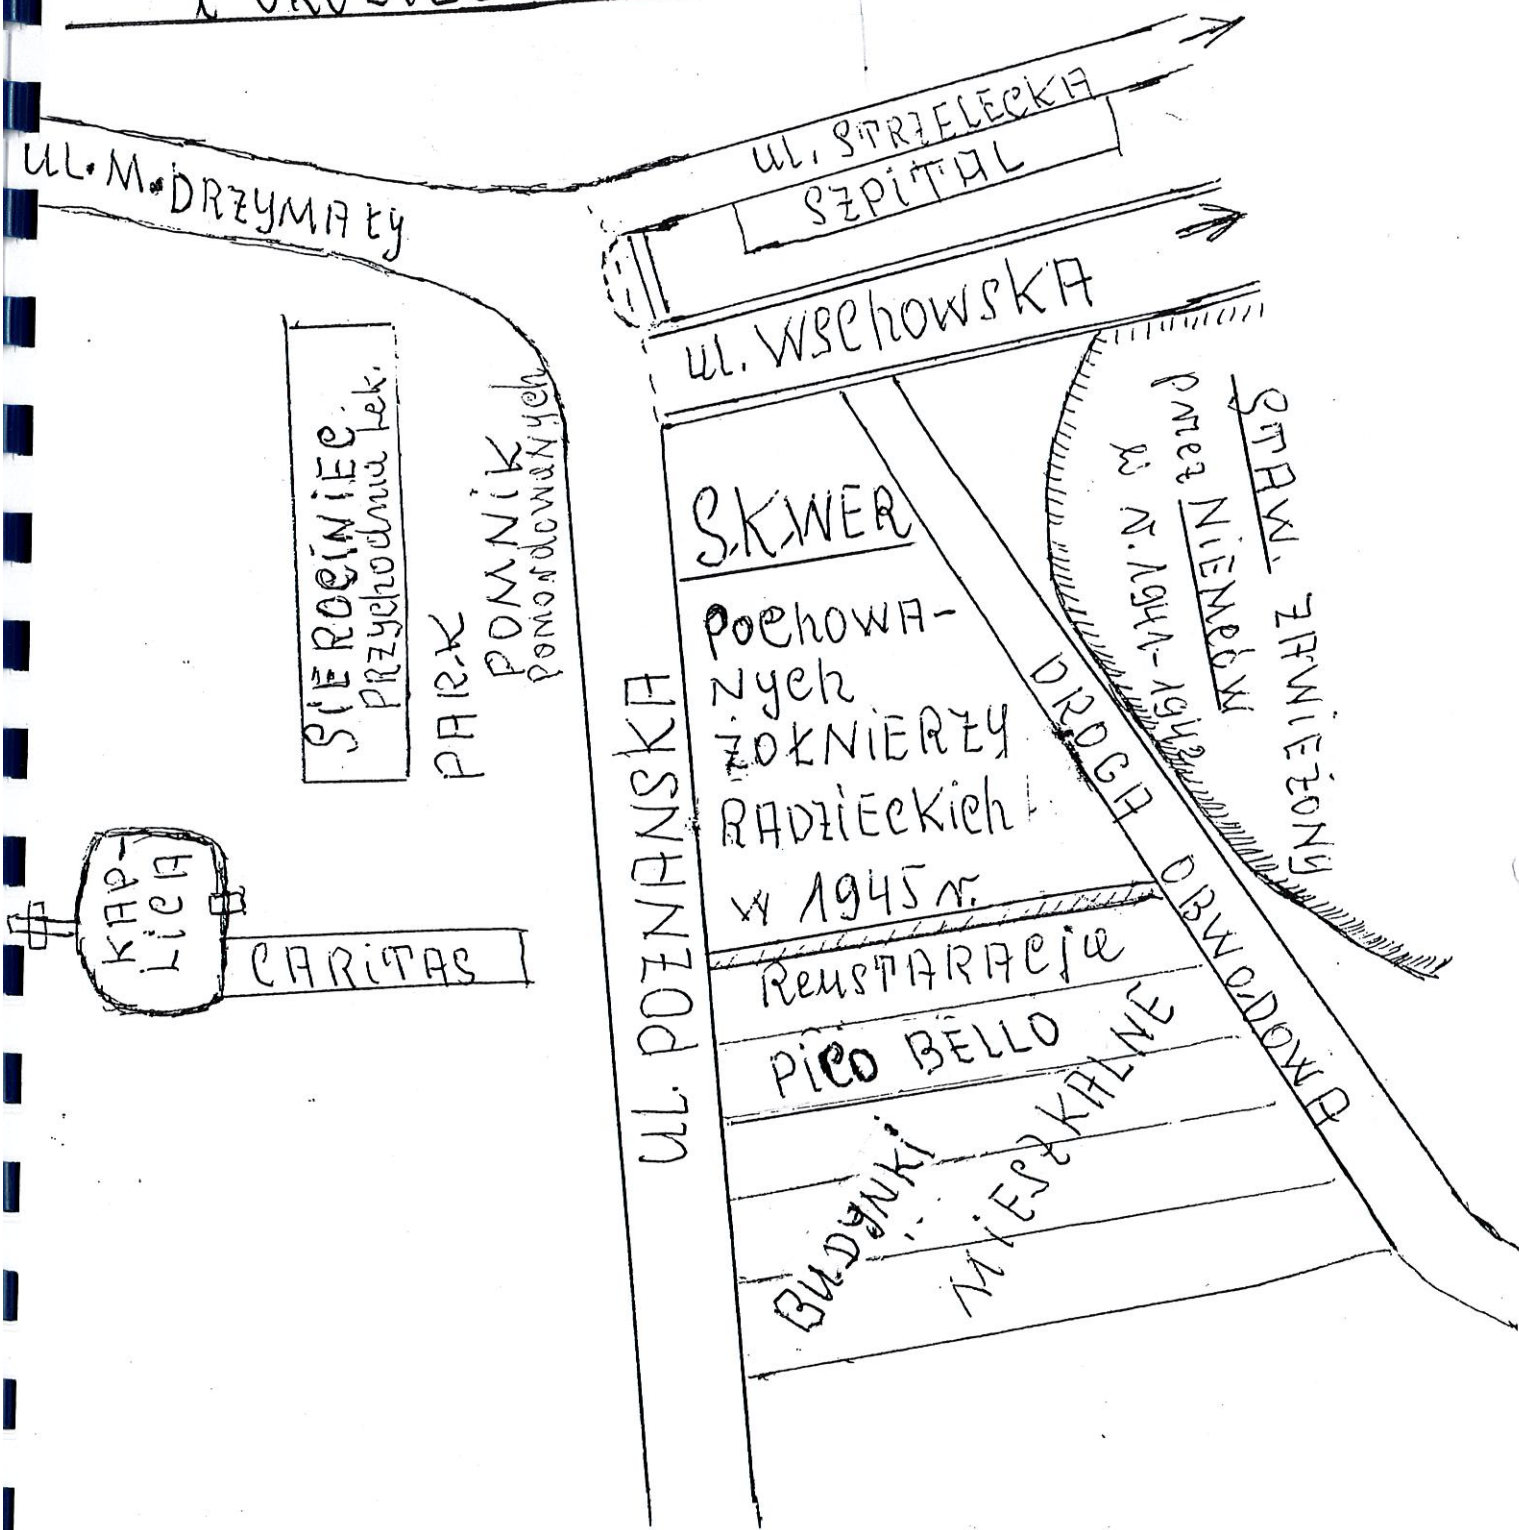 UL. M. DRZYMAŁY
UL. STRZELECKA
SZPITAL
UL. WSChOWSKA
SIEROCiNiEC
PRZYChodnia Lek.
PARK
POMNiK
POMORdOWANYCh
SKWER
POChOWA-
NYCh
ŻOŁNiERZY
RADZiECKiCh
w 1945 r.
UL. POZNANSKA
DROGA OBWODOWA
STAW. ZAWiEŻiONY
przez NiEMCÓW
w r. 1941-1942
KAP-
LiCA
CARiTAS
ReusTARACja
PiCO BELLO
BUDYNKi
MiESZKALNE